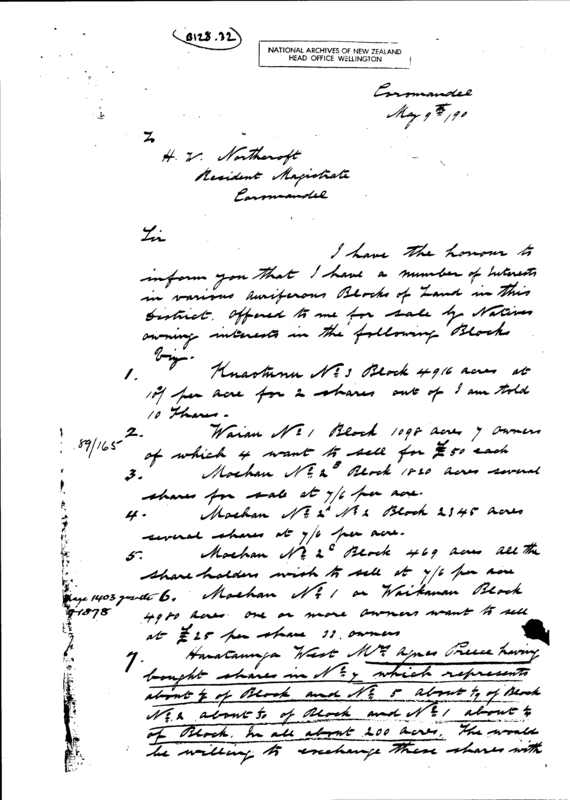 B128.32
NATIONAL ARCHIVES OF NEW ZEALAND
HEAD OFFICE WELLINGTON
Coromandel
May 9th, 90
To
H. W. Northcroft
Resident Magistrate
Coromandel
Sir
I have the honour to
inform you that I have a number of Interests
in various auriferous Blocks of Land in this
District. Offered to me for sale by Natives
owning interests in the following Blocks
Viz.
1. Kuaotunu No 3 Block 4916 acres at
10/ per acre for 2 shares out of I am told
10 Shares.
89/165
2. Waiau No 1 Block 1098 acres 7 owners
of which 4 want to sell for £50 each
3. Moehau No 2B Block 1820 acres several
shares for sale at 7/6 per acre.
4. Moehau No 2A No 2 Block 2345 acres
several shares at 7/6 per acre.
5. Moehau No 2C Block 469 acres all the
share holders wish to sell at 7/6 per acre
page 1403 gazette
1878
6. Moehau No 1 or Waikawau Block
4980 acres one or more owners want to sell
at £25 per share 33 owners
7. Harataunga West Mrs Agnes Preece having
bought shares in No 7 which represents
about of Block and No 5 about of Block
No 2 about of Block and No 1 about
of Block. In all about 200 acres. She would
be willing to exchange these shares with